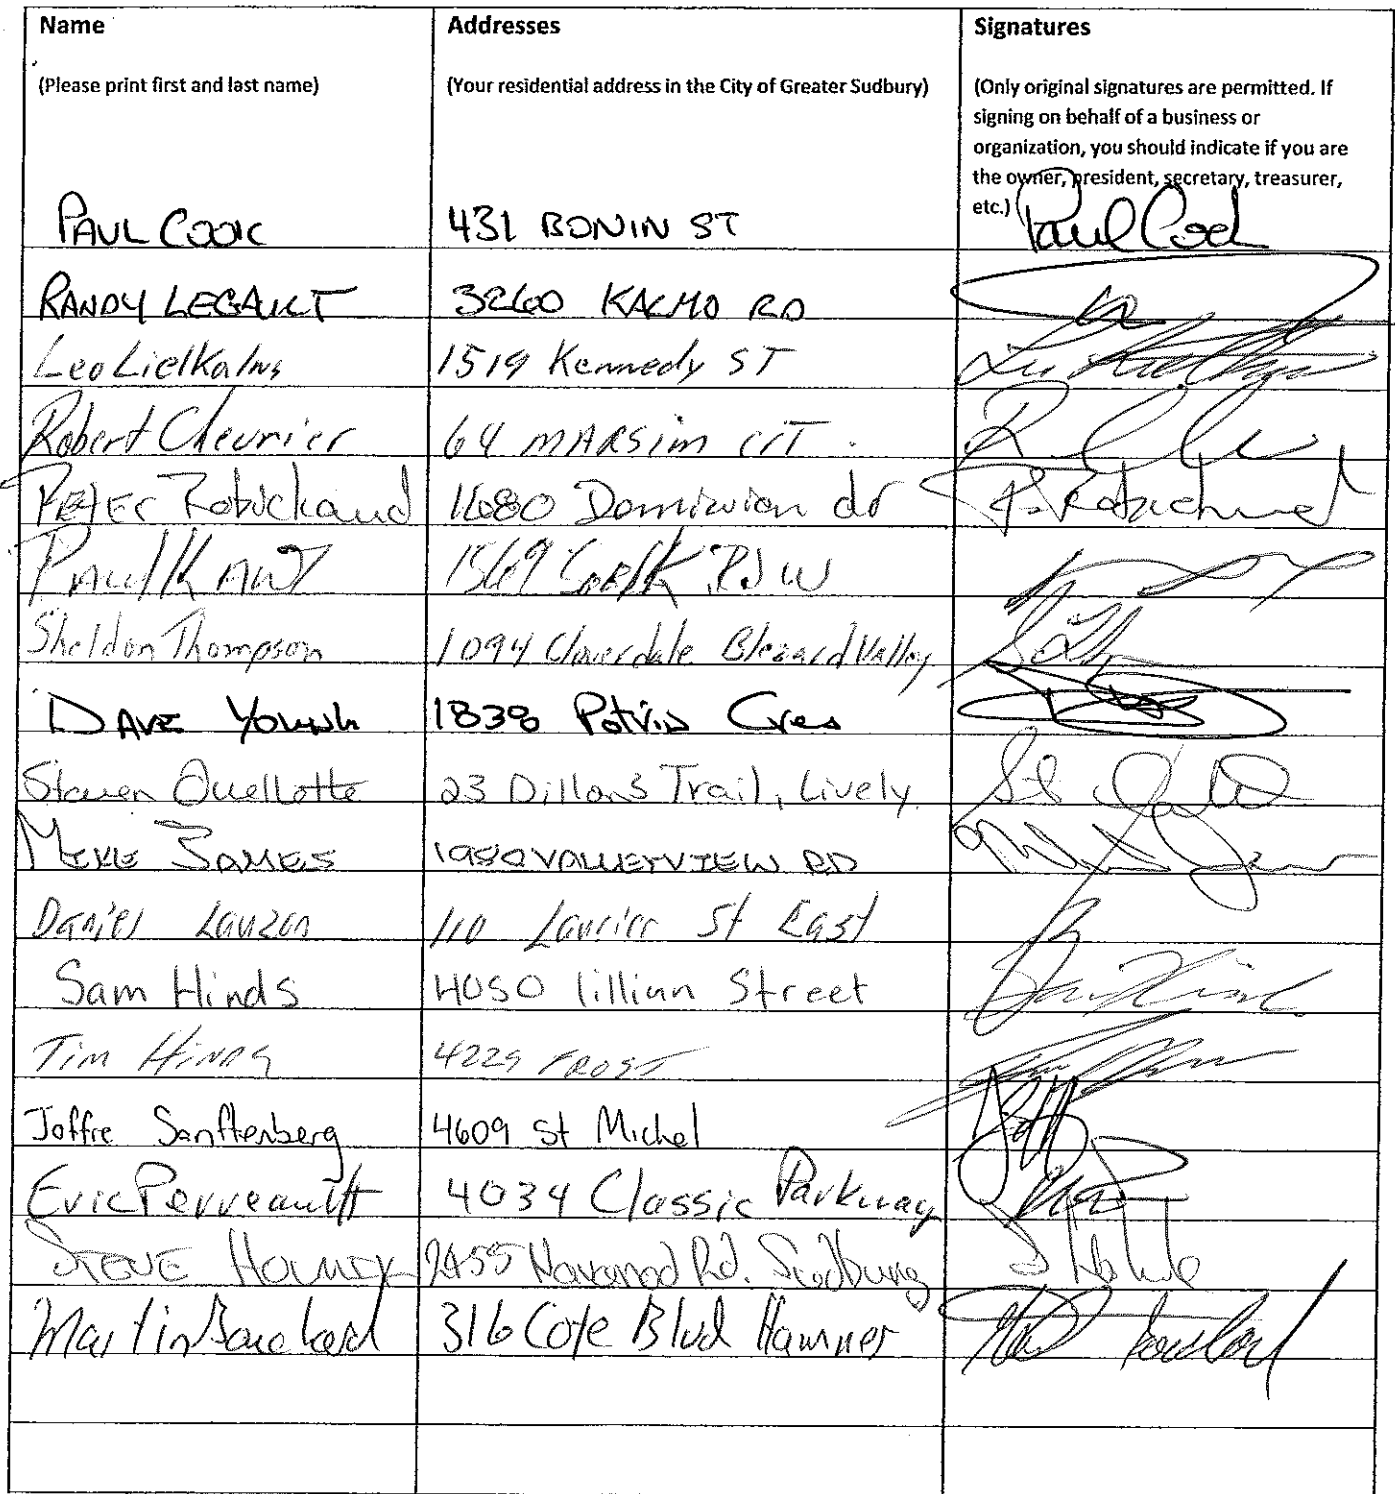 Name Addresses Signatures
(Please print first and last name) (Your residential address in the City of Greater Sudbury) (Only original signatures are permitted. If
signing on behalf of a business or
organization, you should indicate if you are
the owner, president, secretary, treasurer,
etc.)
PAUL COOK 431 BONIN ST Paul Cook
RANDY LEGAULT 3260 KALMO RD
Leo Lielkalns 1519 Kennedy ST
Robert Chevrier 64 MARSim
PETER Robichaud 1680 Dominion dr P. Robichaud
PAUL 1569 RD W
Sheldon Thompson 1094 Cloverdale Blezard Valley
DAVE 1838 Potvin Cres
Steven Ouellette 23 Dillons Trail, Lively
MIKE JAMES VALLEYVIEW RD
Daniel Lauzon 110 Laurier St East
Sam Hinds 4050 lillian Street
Tim 4229 FROST
Joffre Sanftenberg 4609 St Michel
Eric Perreault 4034 Classic Parkway
STEVE Rd. Sudbury
Martin Bouchard 316 Cote Blvd Hanmer